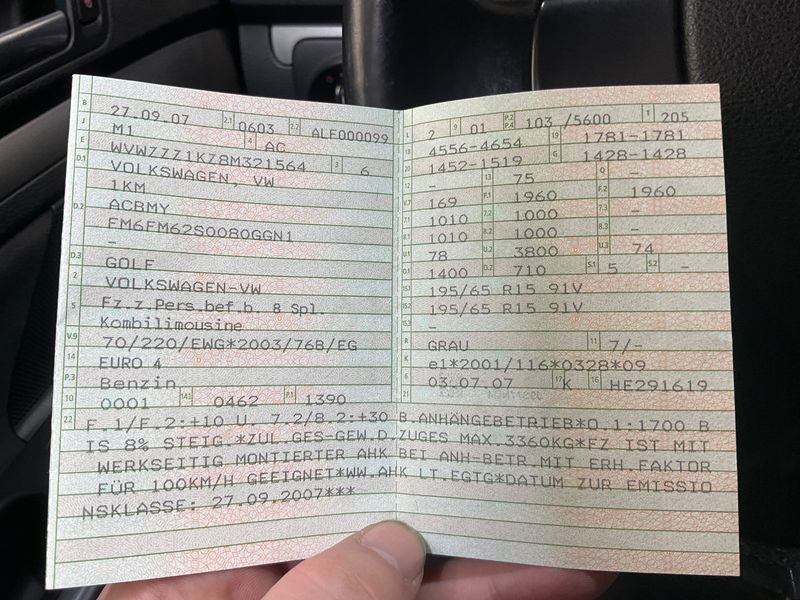 B 27.09.07 2.1 0603 2.2 ALF000099
J M1 4 AC
E WVWZZZ1KZ8M321564 3 6
D.1 VOLKSWAGEN, VW
1KM
D.2 ACBMY
FM6FM62S0080GGN1
-
D.3 GOLF
2 VOLKSWAGEN-VW
5 Fz.z.Pers.bef.b. 8 Spl.
Kombilimousine
V.9 70/220/EWG*2003/76B/EG
14 EURO 4
P.3 Benzin
10 0001 14.1 0462 P.1 1390
L 2 9 01 P.2 P.4 103 /5600 T 205
18 4556-4654 19 1781-1781
20 1452-1519 G 1428-1428
12 - 13 75 Q -
V.7 169 F.1 1960 F.2 1960
7.1 1010 7.2 1000 7.3 -
8.1 1010 8.2 1000 8.3 -
U.1 78 U.2 3800 U.3 74
O.1 1400 O.2 710 S.1 5 S.2 -
15.1 195/65 R15 91V
15.2 195/65 R15 91V
15.3 -
R GRAU 11 7/-
K e1*2001/116*0328*09
6 03.07.07 17 K 16 HE291619
21
22 F.1/F.2:+10 U. 7.2/8.2:+30 B.ANHÄNGEBETRIEB*O.1:1700 B
IS 8% STEIG.*ZUL.GES-GEW.D.ZUGES MAX.3360KG*FZ IST MIT
WERKSEITIG MONTIERTER AHK BEI ANH-BETR.MIT ERH.FAKTOR
FÜR 100KM/H GEEIGNET*WW.AHK LT.EGTG*DATUM ZUR EMISSIO
NSKLASSE: 27.09.2007***